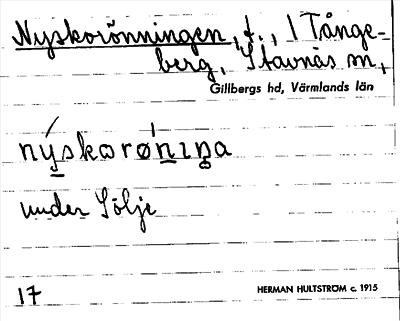 Nyskorönningen, t., I Tånge-
berg, Stavnäs sn,
Gillbergs hd, Värmlands län
nýskɷrǿnɪŋa
under Sölje
17
HERMAN HULTSTRÖM c. 1915